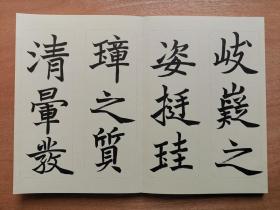 岐嶷之
姿挺珪
璋之質
清暈發